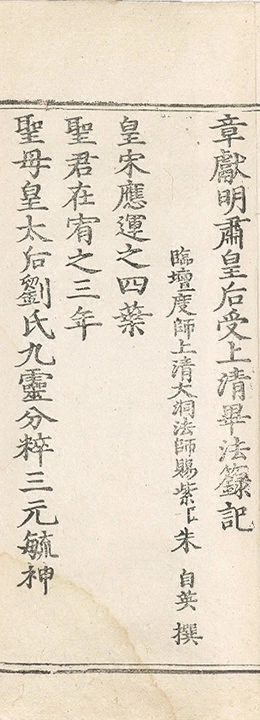 章獻明肅皇后受上清畢法籙記
臨壇度師上清大洞法師賜紫臣朱自英撰
皇宋應運之四葉
聖君在宥之三年
聖母皇太后劉氏九靈分粹三元毓神